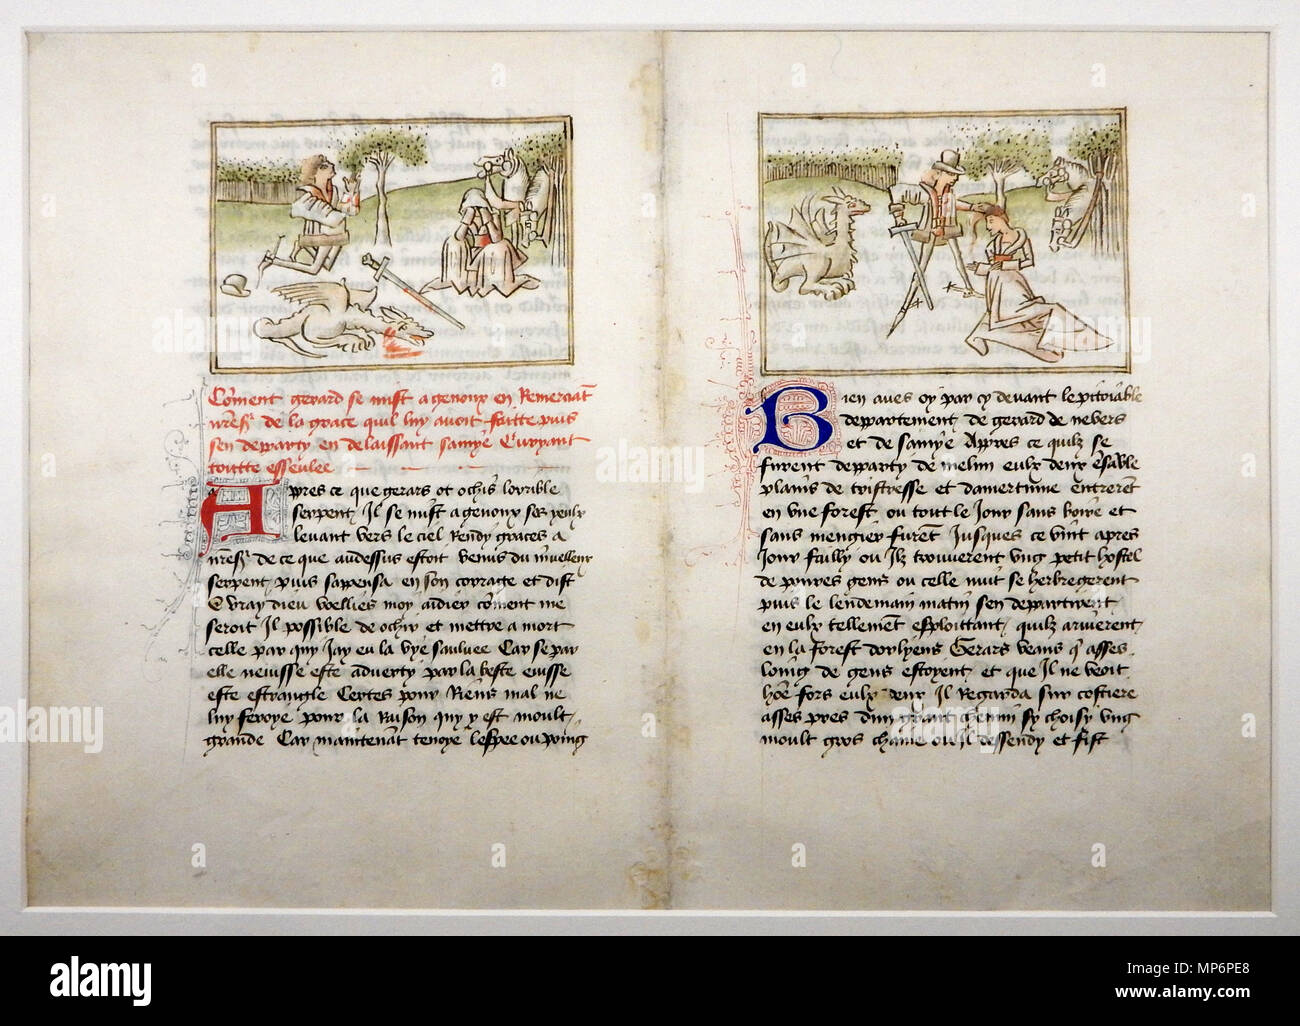 Comment gerard se mist a genoux en Remerciāt
nrēsʳ de la grace quil luy avoit faitte puis
sen departy en delaissant Euryant
toutte esseulee
Apres ce que gerars ot ochis lorrible
serpent Il se mist a genoux ses yeulx
levant vers le ciel Rendy graces a
nrēsʳ de ce que audessus estoit venus du
serpent puis sappensa en son corrage et dist
O vray dieu voelliés moy aidier cōment me
seroit Il possible de ochir et mettre a mort
celle par quy Jay eu la vye saulvee Car se par
elle neuisse este adverty par la beste euisse
este estranglé Certes pour Riens mal ne
luy feroyë pour la Raison quy y est moult
grande Car maintenāt tenoye lespee ou poing
Bien avés oy par cy devant le pitoiable
departement de gerard de nevers
et de Apres ce quilz se
furent departy de eulx deux ēsāble
plains de tristresse et damertume entrerēt
en une forest ou tout le Jour sans boire et
sans mengier furēt Jusques ce vint apres
Jour failly ou Ilz trouverent ung petit hostel
de povres gens ou celle nuit se herbregerent
puis le lendemain matin sen departirent
en eulx tellement esploittant quilz ariverent
en la forest dorlyens Gerars veans q̄ asses
loing de gens estoyent et que Il ne veoit
hōe fors eulx deux Il Regarda sur costiere
asses pres dun grant chemin sy choisy ung
moult gros chaine ou Il dessendy et fist
alamy
Image ID: MP6PE8
www.alamy.com